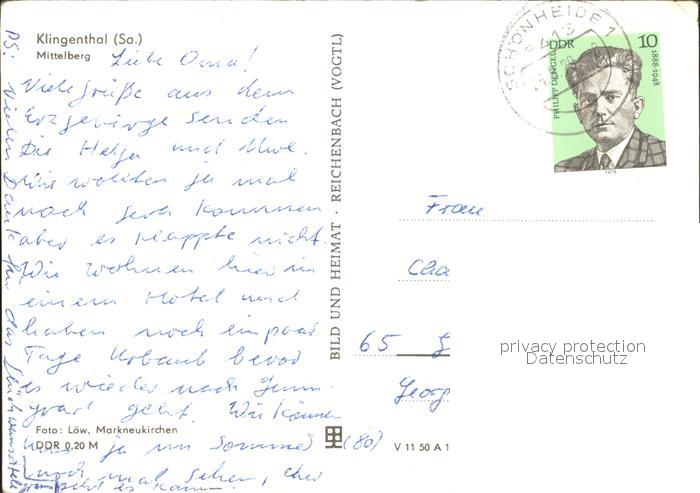 Klingenthal (Sa.)
Mittelberg
Liebe Oma!
Viele Grüße aus dem
Erzgebirge senden
Die Helga und Uwe.
Wir wollten ja mal
nach Gera kommen
aber es klappte nicht.
Wir wohnen hier in
einem Hotel und
haben noch ein paar
Tage Urlaub bevor
es wieder nach
geht. Wir können
uns ja im Sommer
noch mal sehen, eher
geht es kaum.
PS: Vielen Dank für das
Foto: Löw, Markneukirchen
DDR 0,20 M
BILD UND HEIMAT · REICHENBACH (VOGTL)
(80)
V 11 50 A 1
SCHÖNHEIDE 1
DDR
10
PHILIPP DENGEL
1888-1948
1979
Frau
Cla
65 G
Georg
privacy protection
Datenschutz